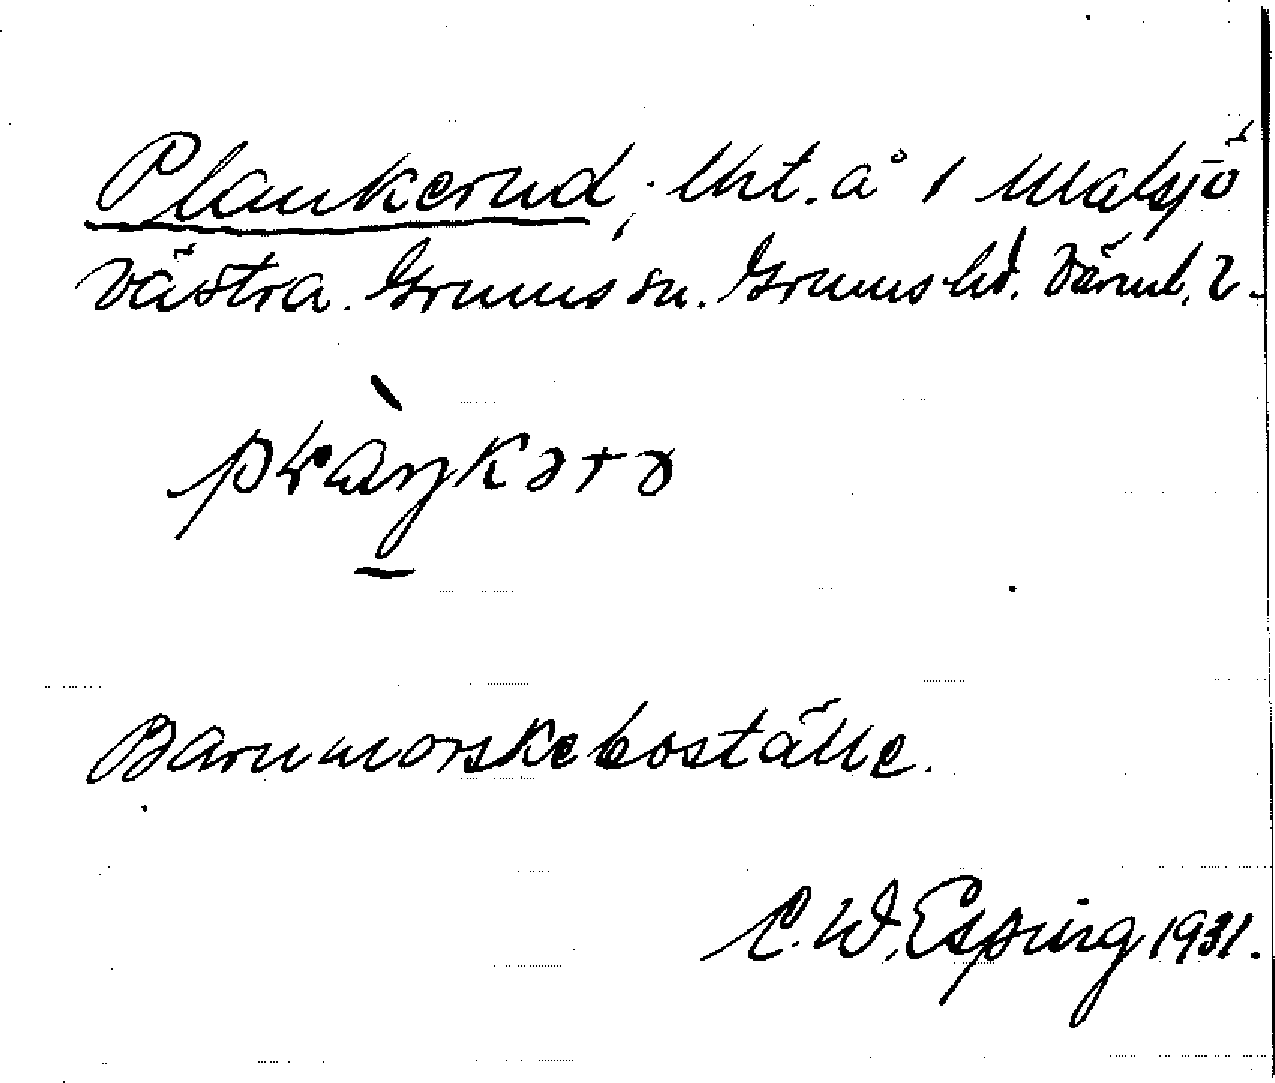 Plankerud; lht. å 1 Malsjö
västra. Grums sn. Grums hd. Värml. l.
Barnmorskeboställe.
C. W. Esping 1931.